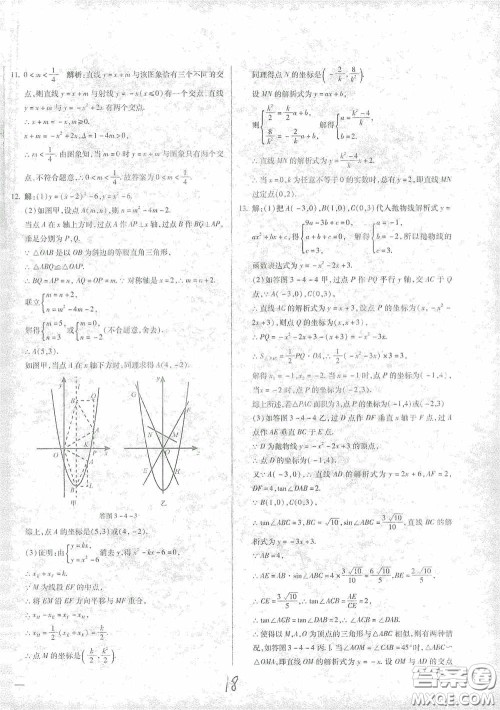 11. 0<m<1/4 解析:直线 y=x+m 与该图象恰有三个不同的交
点,则直线 y=x+m 与射线 y=-x 有一个交点.直线
y=x+m 与 y=-x²+2x 有两个交点.
∴ x+m=-x²+2x,Δ=1-4m>0,
∴ m<1/4.由图象知,当 m≤0 时,直线与图象只有两个交
点,不符合题意,∴ 0<m<1/4.故答案为 0<m<1/4.
12. 解:(1)y=(x-2)²-6,y=x²-6.
(2)如图甲,设点 A(m,n),则 n=m²-4m-2.
当点 A 在 x 轴上方时,过点 A 作 AP⊥OP,过点 B 作 BQ⊥AP,
垂足分别为 P,Q.
∵ △OAB 是以 OB 为斜边的等腰直角三角形,
∴ △ABQ≌△OAP.
∴ BQ=AP=m,AQ=OP=n. ∵ 对称轴是 x=2,
联立{m=n+2, n=m²-4m-2.
解得{m=5, n=3 或{m=0, n=-2(不合题意,舍去).
∴ A(5,3).
如图甲,当点 A 在 x 轴下方时,同理求得 A(4,-2).
y
O
A
B
P
Q
x
甲
y
O
x
乙
答图 3-4-3
综上,点 A 的坐标是(5,3)或(4,-2).
(3)证明:由{y=kx, y=x²-6 得 x²-kx-6=0,
∴ xE+xF=k.
∵ M 为线段 EF 的中点,
∴ xM=1/2(xE+xF)=k/2.
∴ 点 M 的坐标是(k/2,k²/2).
同理得点 N 的坐标是(-2/k,8/k²).
设 MN 的解析式为 y=ax+b,
则{k²/2=k/2 a+b, 8/k²=-2/k a+b,解得{a=(k²-4)/k, b=2.
∴ 直线 MN 的解析式为 y=(k²-4)/k x+2.
∴ 当 x=0,k 为任意不等于 0 的实数时,总有 y=2,即直线 MN
过定点(0,2).
13. 解:(1)把 A(-3,0),B(1,0),C(0,3)代入抛物线解析式 y=
ax²+bx+c,得{9a-3b+c=0, a+b+c=0, c=3,解得{a=-1, b=-2, c=3,所以抛物线的
函数表达式为 y=-x²-2x+3.
(2)如答图 3-4-4,过点 P 作 PQ 平行于 y 轴,交 AC 于 Q
点,∵ A(-3,0),C(0,3),
∴ 直线 AC 的解析式为 y=x+3,设 P 点坐标为(x,-x²-
2x+3),则 Q 点坐标为(x,x+3),
∴ PQ=-x²-2x+3-(x+3)=-x²-3x.
∴ S△PAC=1/2 PQ·OA,∴ 1/2(-x²-3x)·3=3,
解得 x₁=-1,x₂=-2.当 x=-1 时,P 点坐标为(-1,4),
当 x=-2 时,点 P 的坐标为(-2,3),
综上所述,若△PAC 面积为 3,点 P 的坐标为(-1,4)或(-2,3).
(3)如答图 3-4-4,过 D 点作 DF 垂直 x 轴于 F 点,过 A
点作 AE 垂直 BC 于 E 点,
∵ D 为抛物线 y=-x²-2x+3 的顶点,
∴ D 点的坐标为(-1,4),
又∵ A(-3,0),∴ 直线 AD 的解析式为 y=2x+6,AF=2,
DF=4,tan∠DAB=2.
∵ B(1,0),C(0,3),
∴ tan∠ABC=3,BC=√10,sin∠ABC=3√10/10.
∵ AB=4,
∴ AE=AB·sin∠ABC=4×3√10/10=6√10/5,BE=2√10/5,
∴ CE=3√10/5,tan∠ACB=AE/CE=2.
∴ tan∠ACB=tan∠DAB=2,∴ ∠ACB=∠DAB.
∴ 使得以 M,A,O 为顶点的三角形与△ABC 相似,
∴ 有两种情况,如答图 3-4-5.当∠AOM=∠ABC=45°时,△ABC∽
△OMA,即直线 OM 的解析式为 y=-x.设 OM 与 AD 的交点
18
答案圈